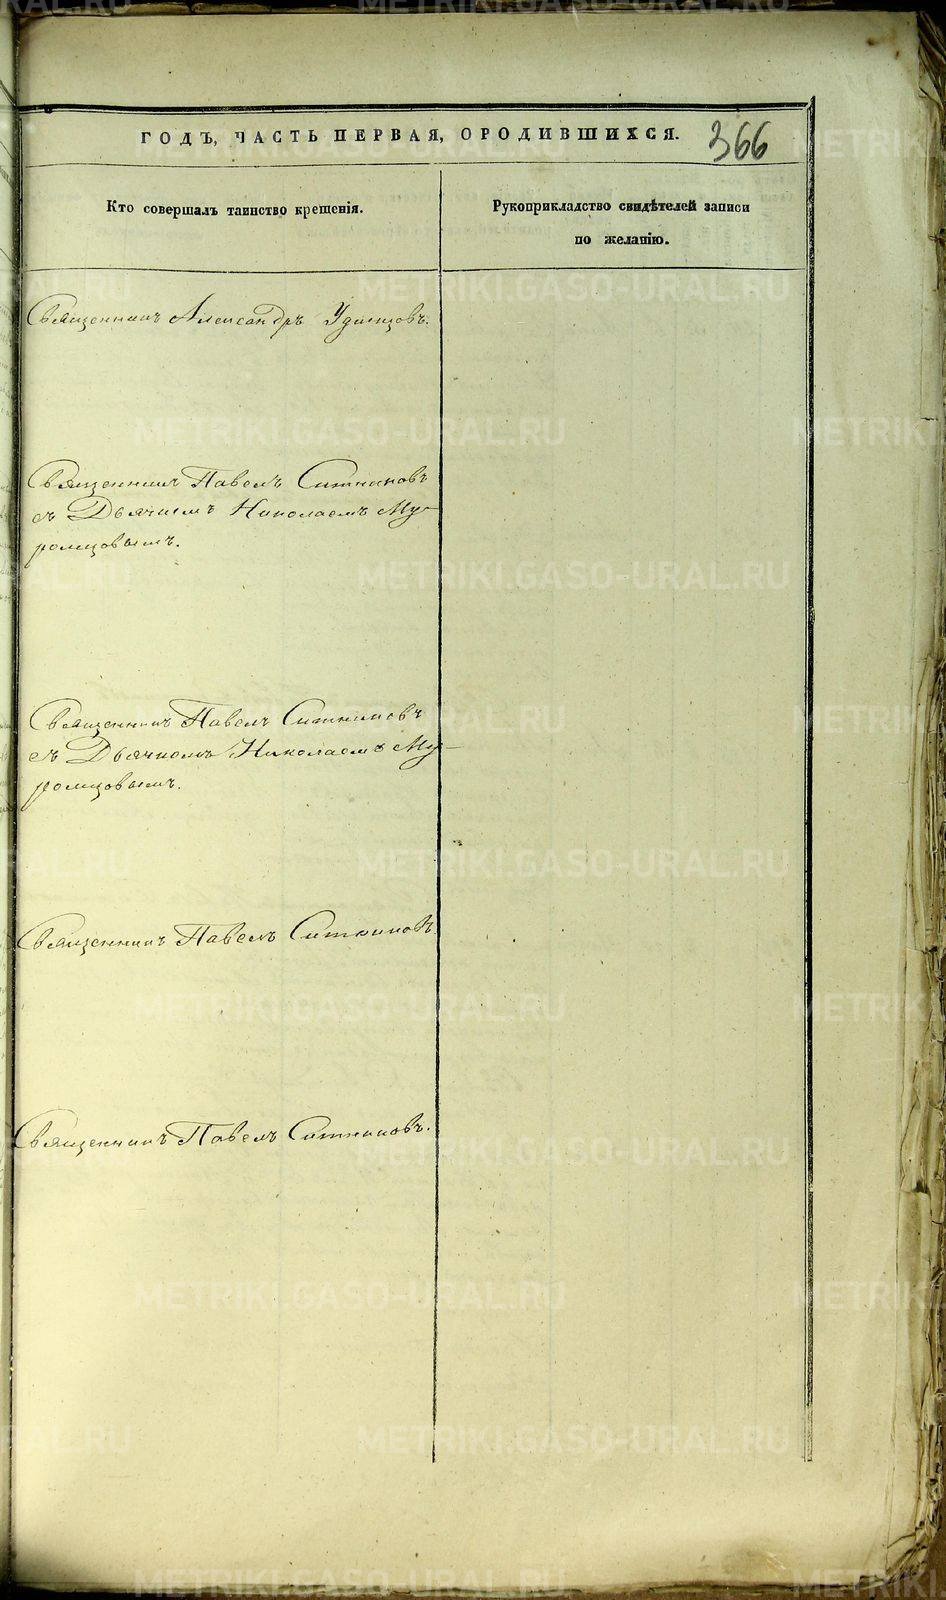 ГОДЪ, ЧАСТЬ ПЕРВАЯ, О РОДИВШИХСЯ. 366
Кто совершалъ таинство крещенія.
Рукоприкладство свидѣтелей записи
по желанію.
Священникъ Александръ Удинцовъ.
Священникъ Павелъ Ситниковъ
съ Дьячкомъ Николаемъ Му-
ромцовымъ.
Священникъ Павелъ Ситниковъ
съ Дьячкомъ Николаемъ Му-
ромцовымъ.
Священникъ Павелъ Ситниковъ.
Священникъ Павелъ Ситниковъ.
METRIKI.GASO-URAL.RU